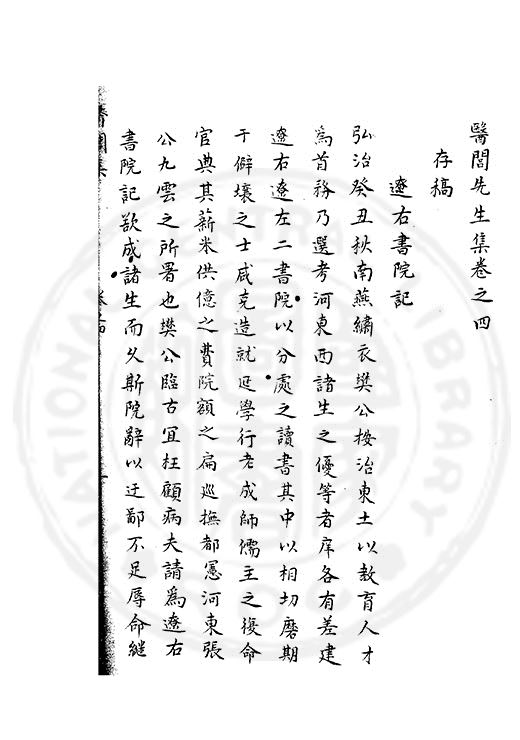 醫閭先生集卷之四
存稿
遼右書院記
弘治癸丑秋南燕繡衣樊公按治東土以教育人才
爲首務乃選考河東西諸生之優等者庠各有差建
遼右遼左二書院以分處之讀書其中以相切磨期
于僻壤之士咸克造就延學行老成師儒主之復命
官典其薪米供億之費院額之扁巡撫都憲河東張
公九雲之所署也樊公臨古冝枉顧病夫請爲遼右
書院記欲成諸生而久斯院辭以迂鄙不足辱命継
醫閭集
卷四